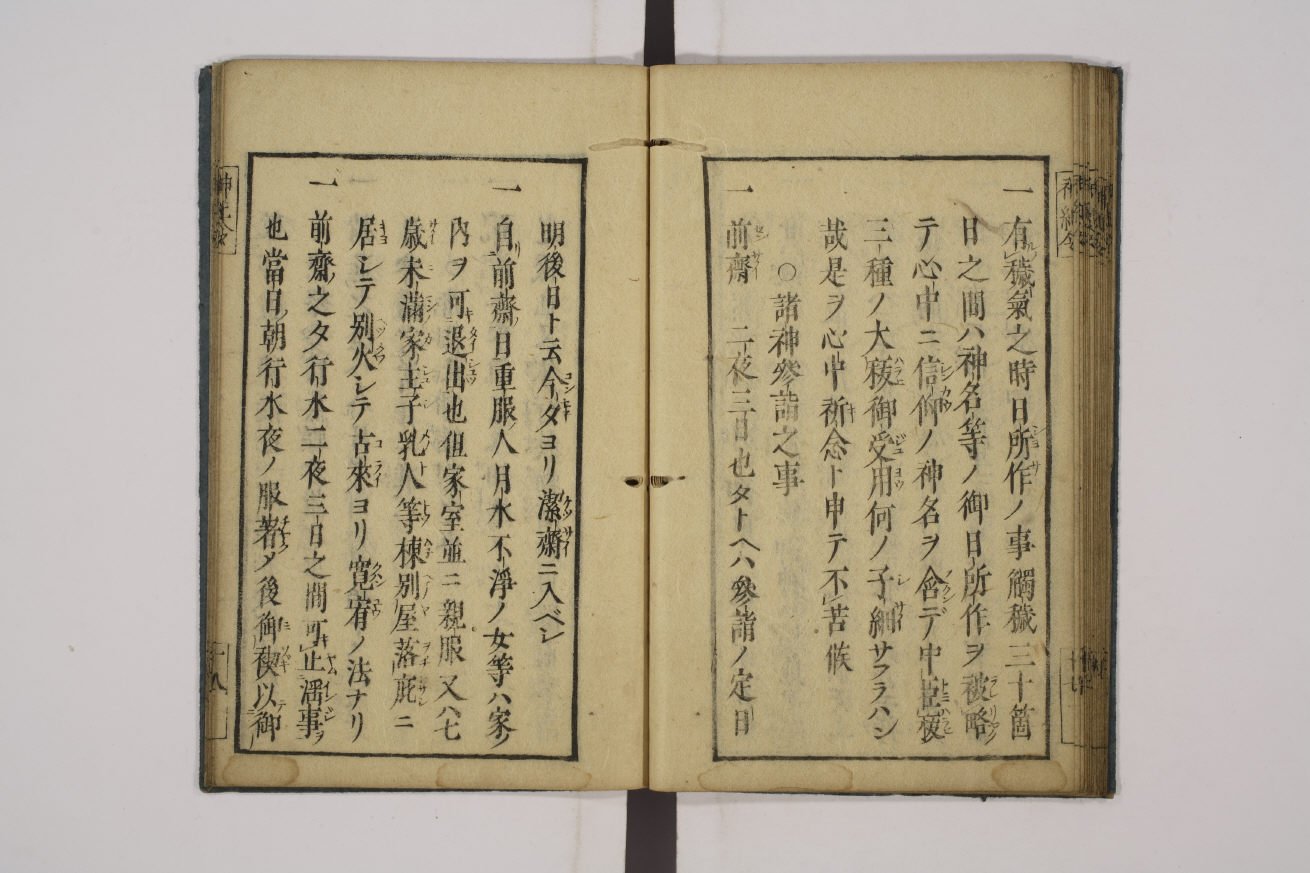 一 有穢氣之時日所作ノ事觸穢三十箇
日之間ハ神名等ノ御日所作ヲ被略
テ心中ニ信仰ノ神名ヲ含デ中臣祓
三種ノ大祓御受用何ノ子細サフラハン
哉是ヲ心中祈念ト申テ不苦候
○諸神參詣之事
一 前齊 二夜三日也タトヘハ參詣ノ定日
明後日ト云今夕ヨリ潔齋ニ入ベシ
一 自前齋日重服人月水不淨ノ女等ハ家ノ
內ヲ可退出也但家室並ニ親服又ハ七
歲未滿家主子乳人等棟別屋落庇ニ
居シテ別火シテ古來ヨリ寬宥ノ法ナリ
一 前齋之夕行水二夜三日之間可止婬事ヲ
也當日朝行水夜ノ服著メ後御禊以御